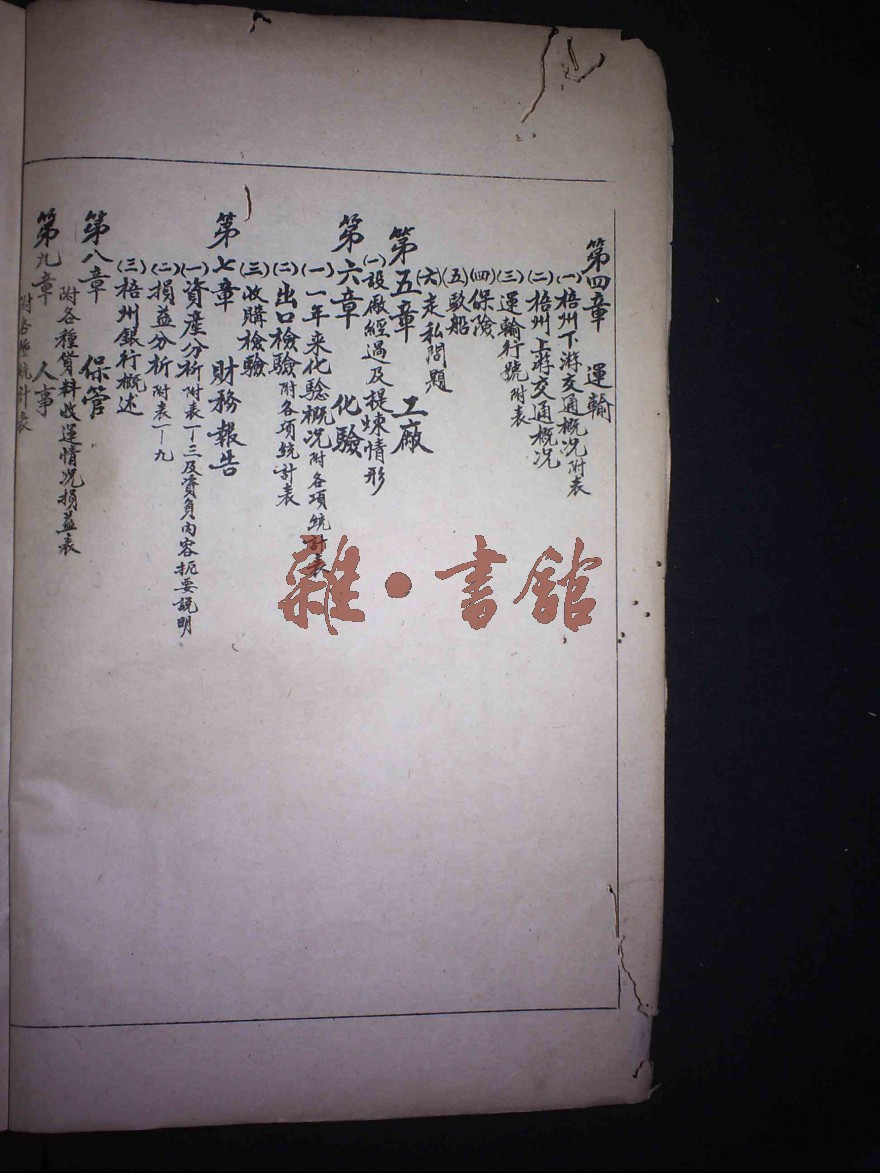 第四章 運輸
(一)梧州下游交通概况附表
(二)梧州上游交通概况
(三)運輸行號附表
(四)保險
(五)駁船
(六)走私問題
第五章 工廠
(一)設廠經過及提煉情形
第六章 化驗
(一)一年来化驗概况附各項統計表
(二)出口檢驗附各項統計表
(三)收購檢驗
第七章 財務報告
(一)資產分析附表一—三及資負內容扼要説明
(二)損益分析附表一—九
(三)梧州銀行概述
第八章 保管
附各種貨料收運情况損益表
第九章 人事
附各種統計表
雜·書館